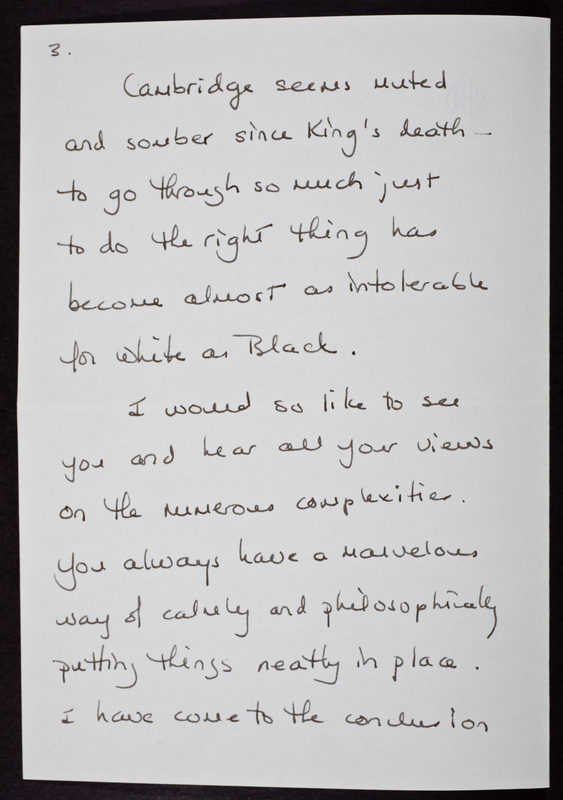 3.
Cambridge seems muted
and somber since King's death —
to go through so much just
to do the right thing has
become almost as intolerable
for white as Black.
I would so like to see
you and hear all your views
on the numerous complexities.
You always have a marvelous
way of calmly and philosophically
putting things neatly in place.
I have come to the conclusion